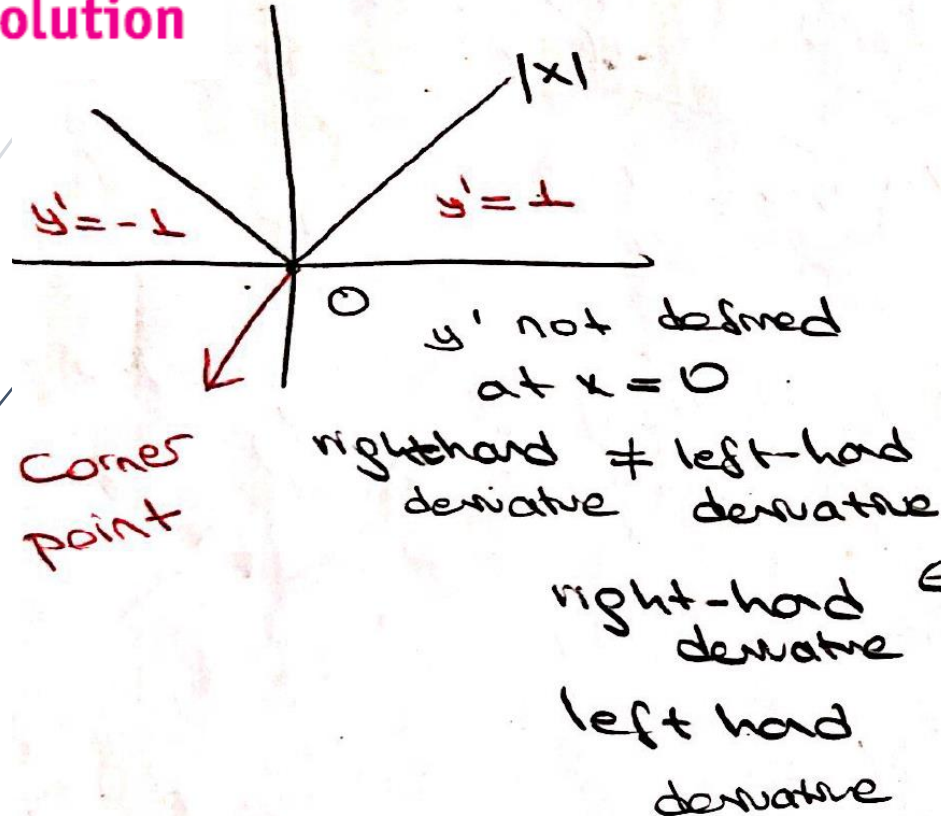 olution
|x|
y'=-1
y'=1
0
y' not defined
at x = 0
Corner
point
righthand ≠ left-hand
derivative derivative
right-hand
derivative
left hand
derivative